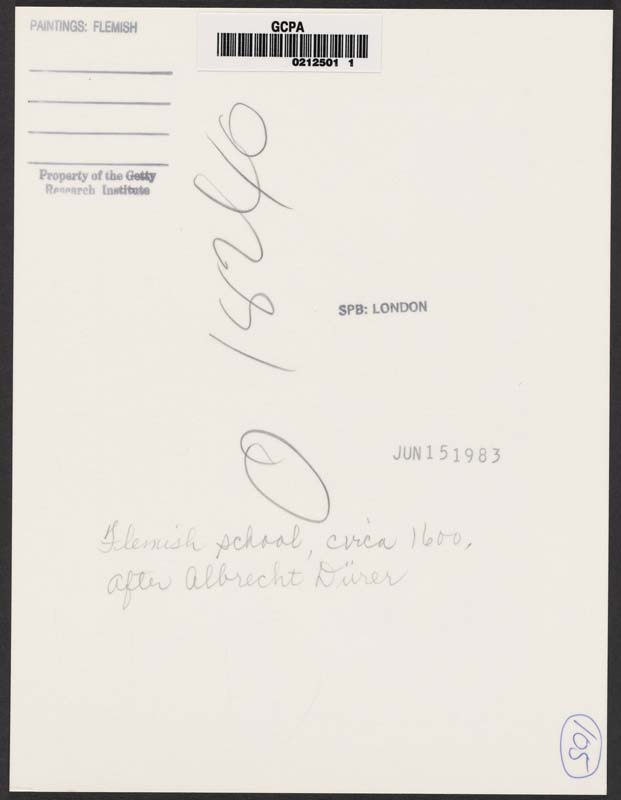 PAINTINGS: FLEMISH
GCPA
0212501 1
Property of the Getty
Research Institute
O 18240
SPB: LONDON
JUN 15 1983
Flemish school, circa 1600,
after Albrecht Dürer
105